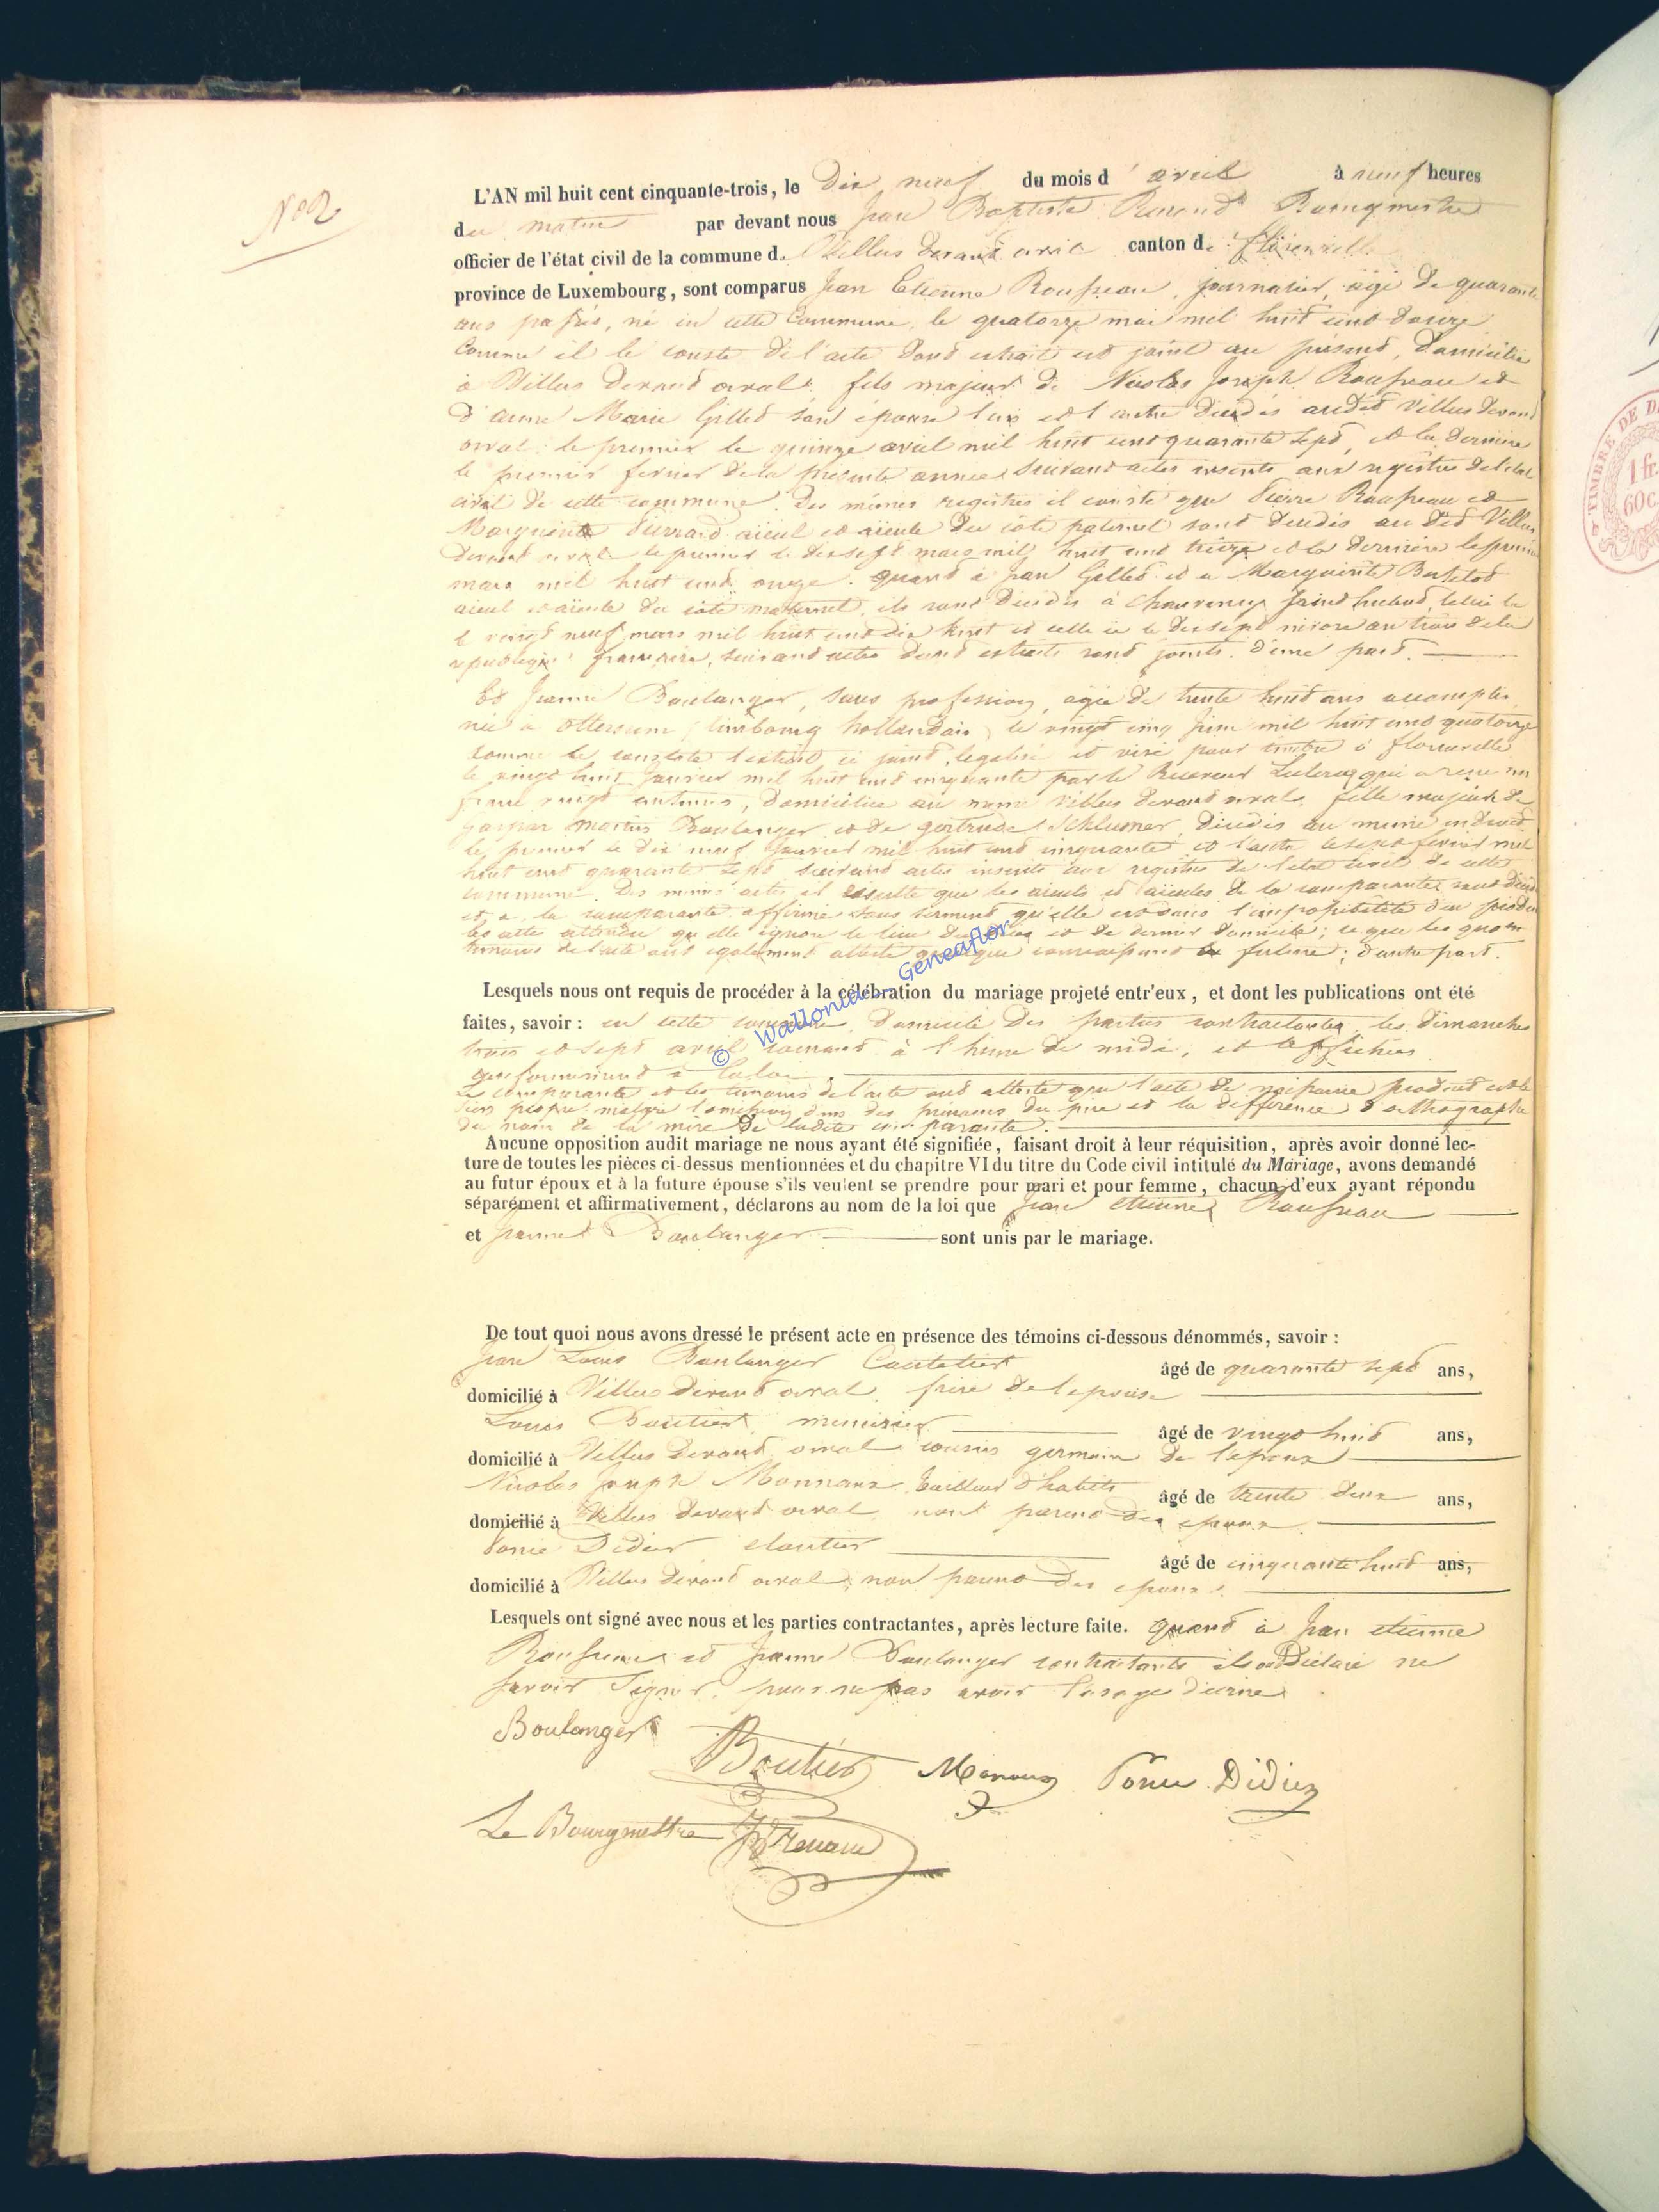 N° 2
L'AN mil huit cent cinquante-trois, le Dix neuf du mois d'avril à neuf heures
du matin par devant nous Jean Baptiste Renaud Bourgmestre
officier de l'état civil de la commune de Villers devant orval canton de florenville
province de Luxembourg, sont comparus Jean Etienne Rousseau, journalier, âgé de quarante
ans passés, né en cette Commune, le quatorze mai mil huit cent douze
Comme il le conste de l'acte dont extrait est joint au présent, domicilié
à Villers devant orval, fils majeur de Nicolas Joseph Rousseau et
d'anne Marie Gillet son épouse l'un et l'autre décédés audit Villers devant
orval: le premier le quinze avril mil huit cent quarante sept, et la dernière
le premier fevrier de la présente année suivant actes inscrits aux registres de l'état
civil de cette commune. Des mêmes registres il conste que Pierre Rousseau et
Marguerite aïeul et aïeule du côté paternel sont décédés au dit Villers
devant orval le premier le dix sept mars mil huit cent treize et la dernière le premier
mars mil huit cent onze. quand à jean Gillet et a Marguerite
aieul et aïeule du côté maternel, ils sont décédés à Chauvency Saint hubert, celui la
le vingt neuf mars mil huit cent dix huit et celle ci le dix sept nivose an trois de la
republique française, suivant actes dont extraits sont joints. d'une part.
Et Jeanne Boulanger, sans profession, agée de trente huit ans accomplis
née à Ottersum (limbourg hollandais) le vingt cinq juin mil huit cent quatorze
comme le constate l'extrait ci joint, légalisé et visé pour timbre à florenville
le vingt huit Janvier mil huit cent cinquante par le Receveur Leclercq qui a reçu un
franc vingt centimes, domiciliée au même Villers devant orval, fille majeure de
Gaspar martin Boulanger et de gertrude Schlumer, décédés au même endroit
le premier le dix neuf Janvier mil huit cent cinquante et l'autre le sept fevrier mil
huit cent quarante sept suivant actes inscrits aux registres de l'état civil de cette
commune. Des mêmes actes il resulte que les aïeuls et aïeules de la comparante sont décédés
et a la comparante affirmé sous serment qu'elle est dans l'impossibilité d'en produire
les actes attendu qu'elle ignore le lieu de et de dernier domicile; ce que les quatre
témoins de l'acte ont egalement attesté future; d'autre part.
Lesquels nous ont requis de procéder à la célébration du mariage projeté entr'eux, et dont les publications ont été
faites, savoir: en cette commune, domicile des parties contractantes, les dimanches
trois et sept avril courant à l'heure de midi; et affichées
conformément à la loi.
La comparante et les temoins de l'acte ont attesté que l'acte de naissance produit est le
sien propre malgré l'omission d'un des prénoms du père et la différence d'orthographe
du nom de la mère de ladite comparante.
Aucune opposition audit mariage ne nous ayant été signifiée, faisant droit à leur réquisition, après avoir donné lec-
ture de toutes les pièces ci-dessus mentionnées et du chapitre VI du titre du Code civil intitulé du Mariage, avons demandé
au futur époux et à la future épouse s'ils veulent se prendre pour mari et pour femme, chacun d'eux ayant répondu
séparément et affirmativement, déclarons au nom de la loi que Jean etienne Rousseau
et jeanne Boulanger sont unis par le mariage.
De tout quoi nous avons dressé le présent acte en présence des témoins ci-dessous dénommés, savoir:
Jean Louis Boulanger âgé de quarante sept ans,
domicilié à Villers devant orval, frère de l'epouse
Louis Boutier, menuisier âgé de vingt huit ans,
domicilié à Villers devant orval cousin germain de l'epoux
Nicolas Joseph Monnaux, tailleur d'habits âgé de trente deux ans,
domicilié à Villers devant orval non parent des epoux.
Didier cloutier âgé de cinquante huit ans,
domicilié à Villers devant orval, non parent des epoux.
Lesquels ont signé avec nous et les parties contractantes, après lecture faite. quand à Jean etienne
Rousseau et Jeanne Boulanger contractants ils ont déclaré ne
savoir signer, pour ne pas avoir l'usage d'ecrire
Boulanger Boutier Monaux Didier
Le Bourgmestre JB Renaud
© Wallonia - Geneaflor
TIMBRE DE D
1 fr.
60c.